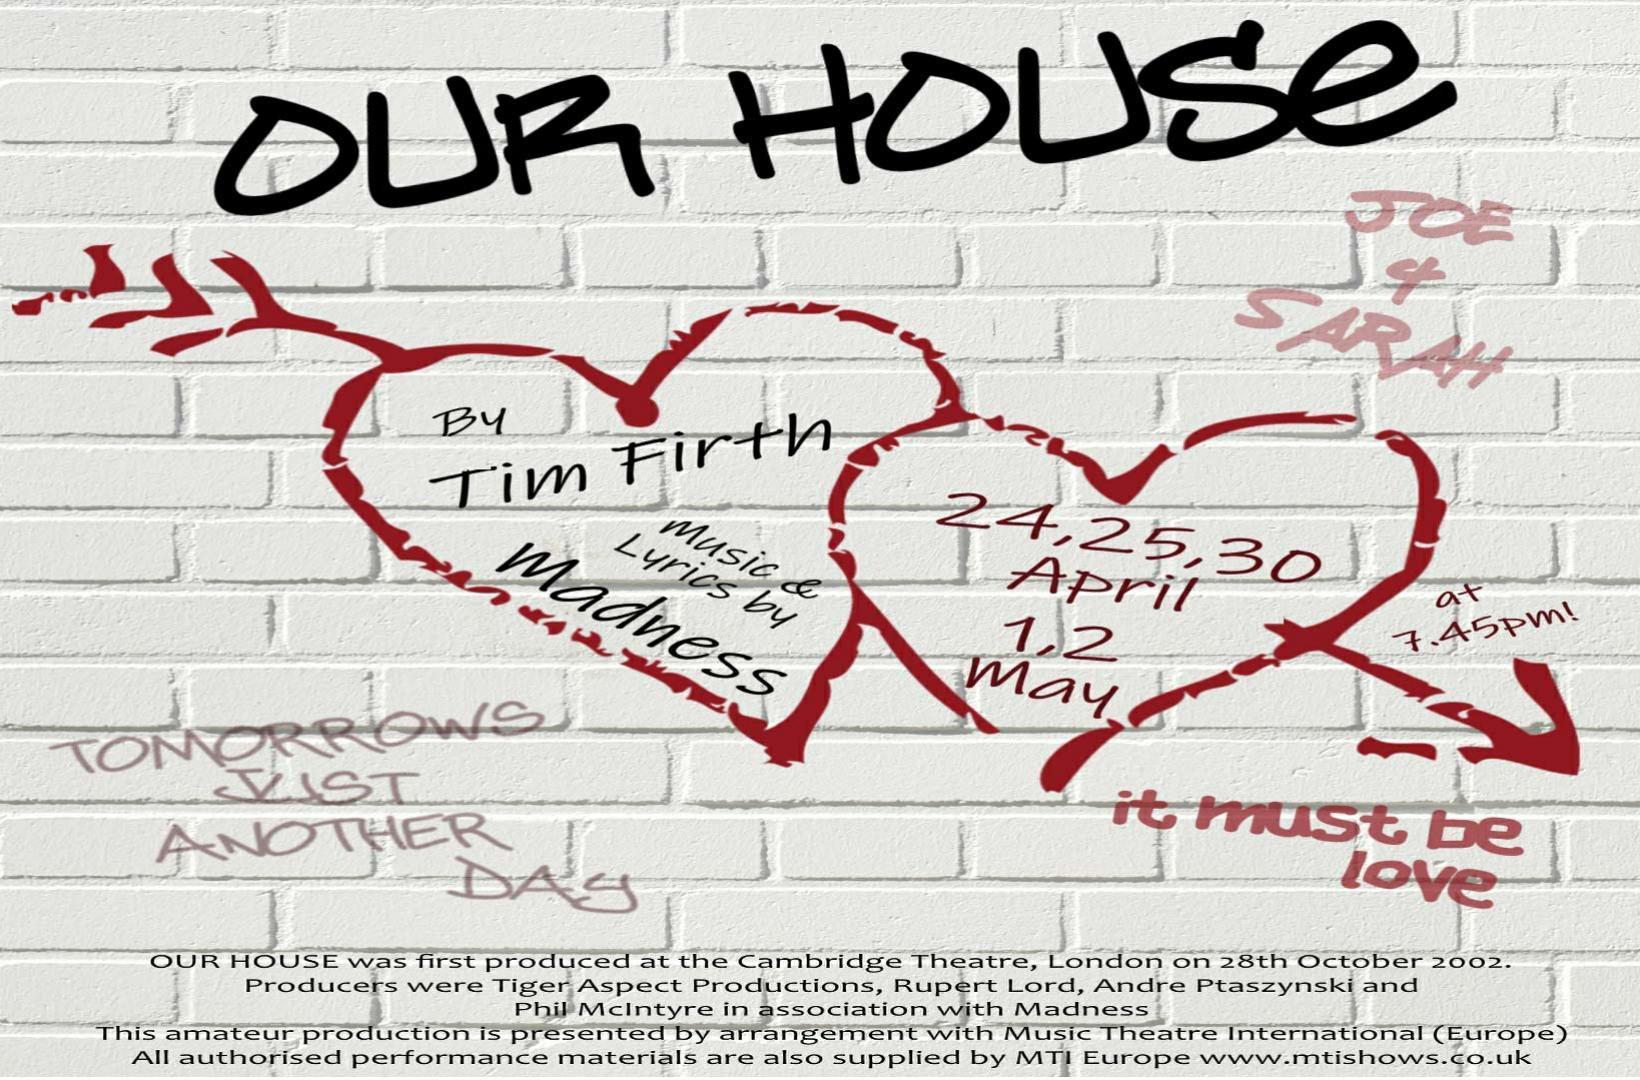 OUR HOUSE
JOE
4
SARAH
By
Tim Firth
Music &
Lyrics by
Madness
24,25,30
April
1,2
May
at
7.45pm!
TOMORROWS
JUST
ANOTHER
DAY
it must be
love
OUR HOUSE was first produced at the Cambridge Theatre, London on 28th October 2002.
Producers were Tiger Aspect Productions, Rupert Lord, Andre Ptaszynski and
Phil McIntyre in association with Madness
This amateur production is presented by arrangement with Music Theatre International (Europe)
All authorised performance materials are also supplied by MTI Europe www.mtishows.co.uk